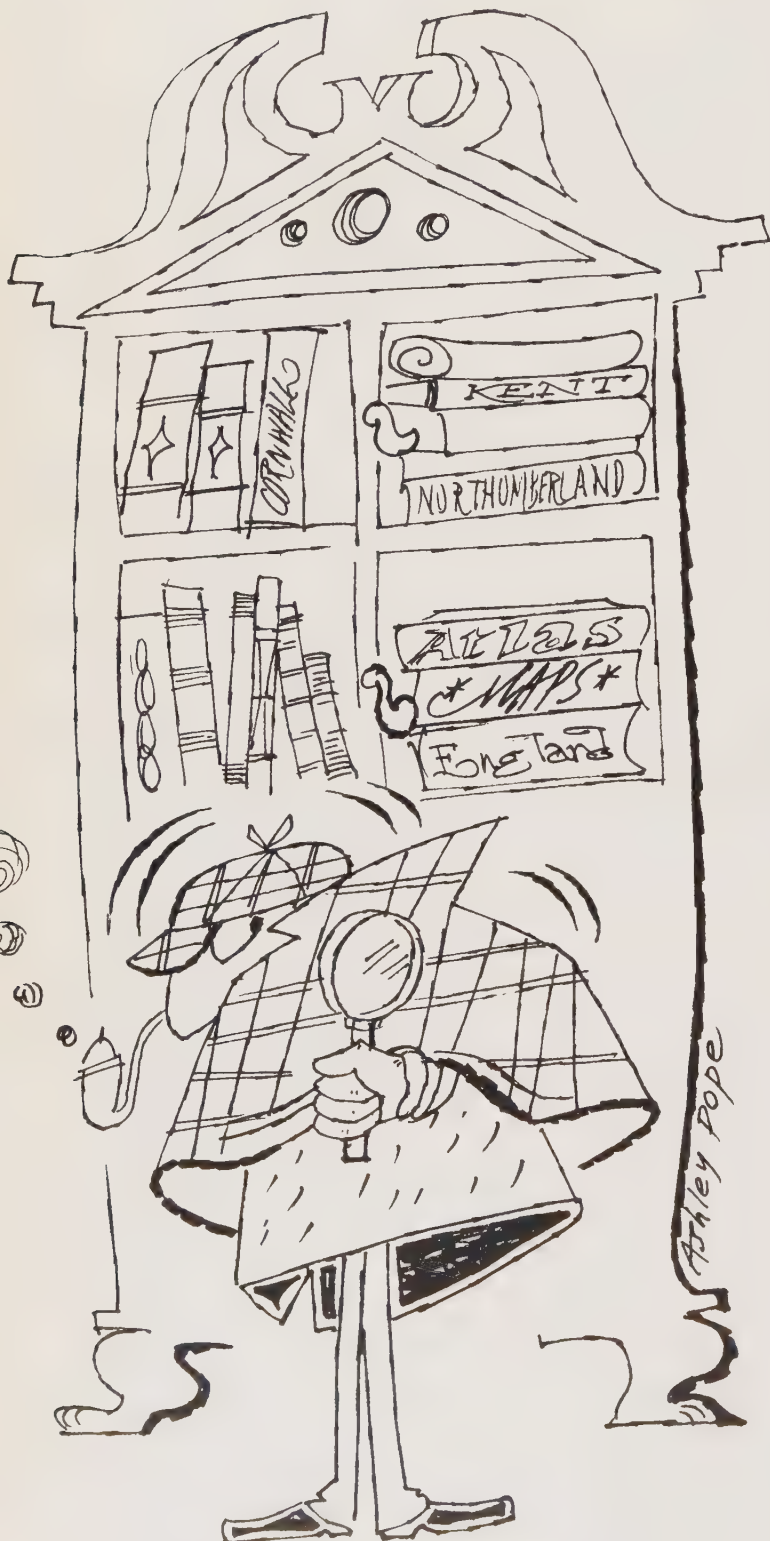 CORNWALL
KENT
NORTHUMBERLAND
Atlas
*MAPS*
England
Ashley Pope